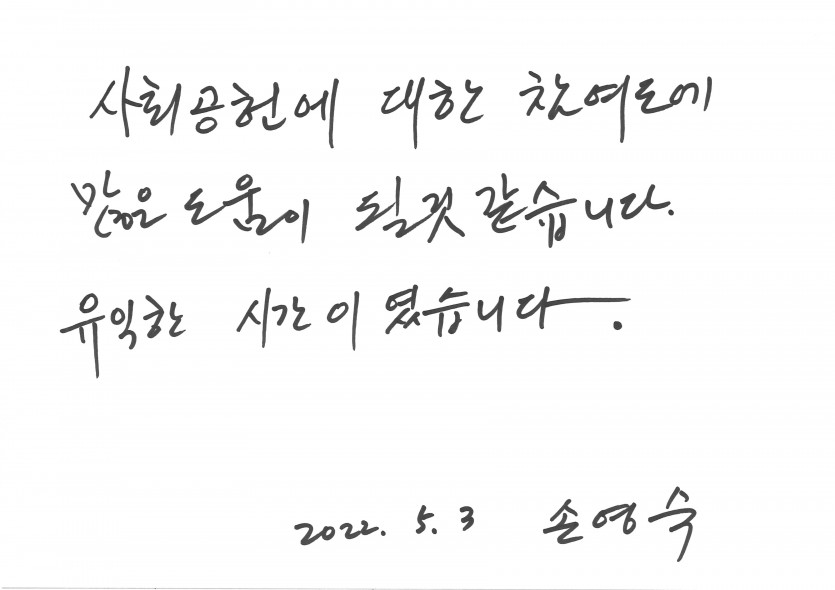 사회공헌에 대한 참여도에
많은 도움이 될것 같습니다.
유익한 시간이였습니다.
2022. 5. 3 손영숙